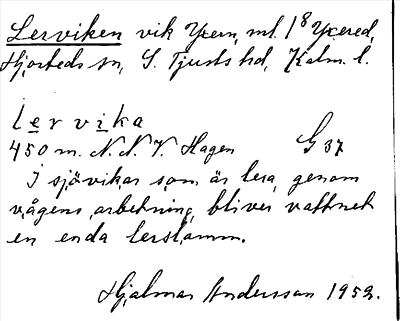 Lerviken vik Yxern, ml. 1⁸ Yxered,
Hjorteds sn, S. Tjusts hd, Kalm. l.
lervika
450 m. N.N.V. Hagen G 37
I sjövikar som är lera genom
vågens arbetning, bliver vattnet
en enda lerslamm.
Hjalmar Andersson 1952.